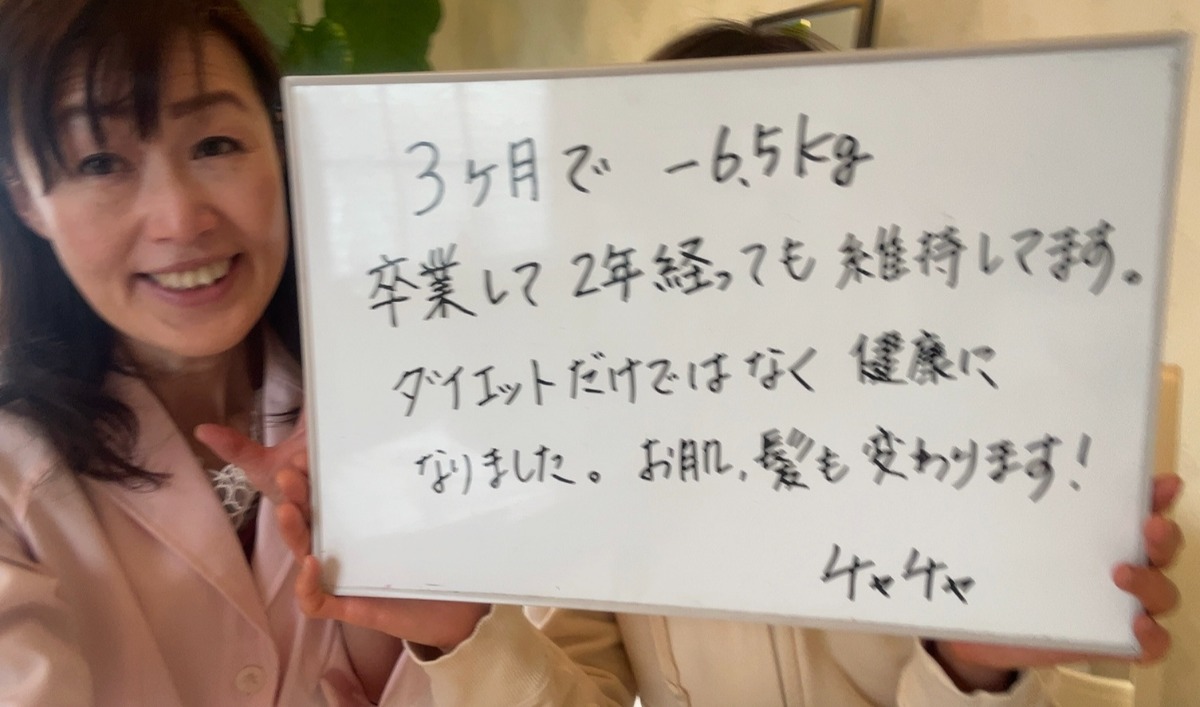 3ヶ月で -6.5kg
卒業して 2年経っても維持してます。
ダイエットだけではなく 健康に
なりました。お肌、髪も変わります!